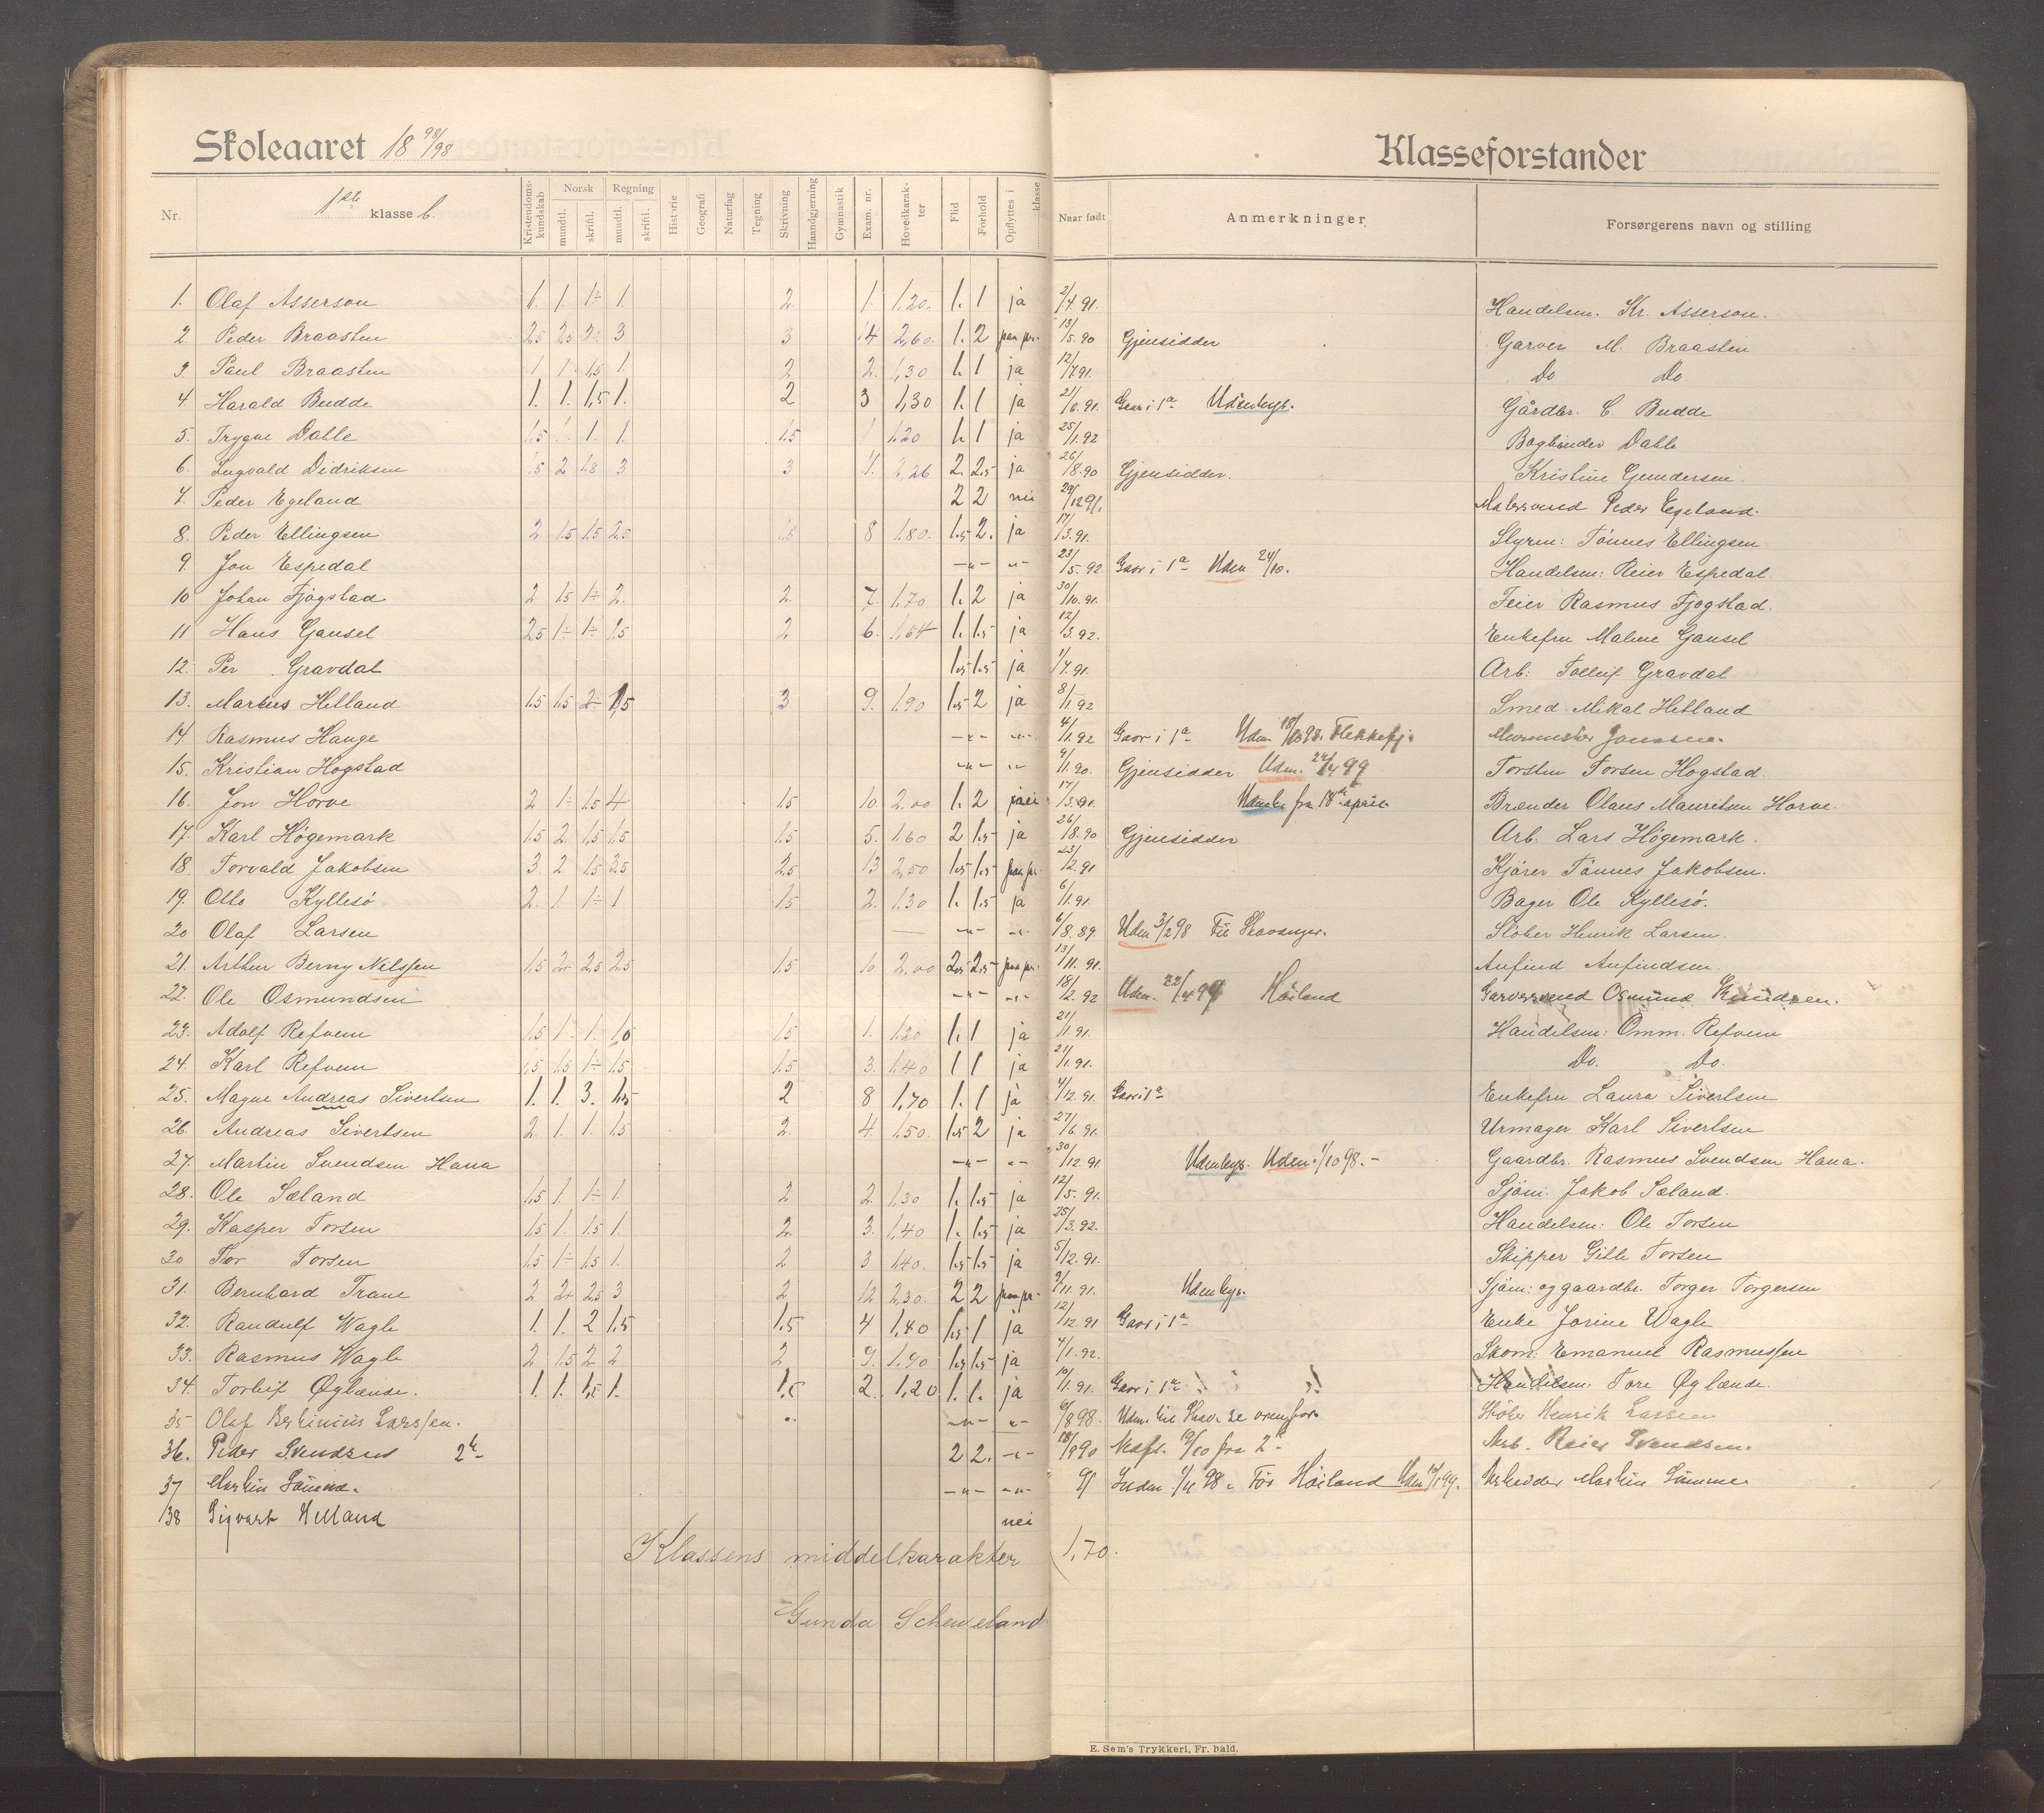 Skoleaaret 18 98/98
Klasseforstander
Nr.
1ste klasse b.
Kristendoms-kundskab
Norsk
mundtl.
skriftl.
Regning
mundtl.
skriftl.
Historie
Geografi
Naturfag
Tegning
Skrivning
Haandgjerning
Gymnastik
Exam. nr.
Hovedkarakter
Flid
Forhold
Opflyttes i klasse
Naar født
Anmerkninger
Forsørgerens navn og stilling
1. Olaf Asserson 1. 1. 1÷ 1. 2. 1. 1,20. 1. 1 ja 2/4.91. Handelsm. Kr. Asserson.
2 Peder Braasten 2,5 2,5 2÷ 3 3 14 2,60. 1. 2 paa pr. 13/5.90 Gjensidder Garver M. Braasten
3 Paul Braasten 1 1 1,5 1. 2 2. 1,30 1. 1 ja 12/7.91. Do Do.
4. Harald Budde 1. 1. 1,5 1. 2 3 1,30 1. 1 ja 21/6.91. Gaar i 1a Udenbys. Gårdbr. C. Budde
5. Trygve Dahle 1,5 1. 1. 1,5 1 1,20 1. 1 ja 25/1.92 Bogbinder Dahle
6. Ingvald Didriksen 1,5 2 1,8 3 3 2,26 2. 2,5 ja 26/8.90 Gjensidder. Kristine Gundersen.
7. Peder Egeland 2 2 nei 29/12 91. Malersvend Peder Egeland.
8. Peder Ellingsen 2 1,5 1,5 2,5 1,5 8 1,80. 1,5 2. ja 17/3.91. Styrm: Tønnes Ellingsen
9. Jon Espedal -"- -"- 23/5.92 Gaar i 1a Uden 24/10. Handelsm: Reier Espedal.
10 Johan Fjogstad 2 1,5 1÷ 2. 2. 7. 1,70 1. 2 ja 30/10.91. Feier Rasmus Fjogstad.
11 Hans Gansel 2,5 1÷ 1÷ 1,5 2 6. 1,64 1. 1,5 ja 12/3.92. Enkefru Malene Gansel
12. Per Gravdal 1,5 1,5 ja 1/7.91. Arb: Tollef Gravdal
13. Marius Helland 1,5 1,5 2÷ 1,5 3 9. 1,90 1,5 2 ja 8/1.92 Smed Mikal Hetland
14 Rasmus Hauge -"- -"- 4/1.92 Gaar i 1a Udm. 18/10 98. Flekkefj. Murmester
15. Kristian Hogstad -"- -"- 9/11.90. Gjensidder Udm. 24/4 99 Torsten Torsen Hogstad.
16. Jon Horve 2 1÷ 1,5 4 1,5 10. 2,00 1. 2 17/3.91. Udenby. fra 18de april. Brænder Olaus Mauritsen Horve.
17. Karl Høgemark 1,5 2 1,5 1,5 1,5 5. 1,60 2 1,5 ja 26/8.90 Gjensidder Arb. Lars Høgemark.
18. Torvald Jakobsen 3. 2 1,5 3,5 2,5 13 2,50 1,5 1,5 paa pr. 23/2.91 Kjører Tønnes Jakobsen.
19. Otto Kyllesø. 2. 1 1÷ 1 1,5 2. 1,30 1. 1,5 ja 6/1.91. Bager Ole Kyllesø.
20 Olaf Larsen -"- -"- 6/8.89. Udm 3/2 98 Til Stavanger. Støber Henrik Larsen.
21. Arthur Berny Nilssen 1,5 2÷ 2,5 2,5 1,5 10. 2,00 2,5 2,5 paa pr. 13/11.91. Anfind Anfindsen.
22. Ole Osmundsen -"- -"- 18/2.92 Udm. 22/4 99 Høiland Garversvend Osmund Knudsen.
23. Adolf Refvem 1,5 1. 1. 1,5 1,5 1. 1,20 1. 1 ja 21/1.91. Handelsm: Omm. Refvem
24. Karl Refvem 1,5 1,5 1÷ 1,5 1,5 3. 1,40 1 1 ja 21/1.91. Do. Do.
25. Magne Andreas Sivertsen 1. 1. 3. 1,5 2 8 1,70 1. 1 ja 4/12.91. Gaar i 1a Enkefru Laura Sivertsen
26. Andreas Sivertsen 2. 1. 1. 1,5 2. 4. 1,50. 1,5 2 ja 27/6.91. Urmager Karl Sivertsen
27. Martin Svendsen Hana -"- -"- 30/12.91 Udenbys. Uden. 1/10 98. Gaardbr. Rasmus Svendsen Hana.
28. Ole Sæland 1,5 1. 1÷ 1. 2 2. 1,30 1. 1,5 ja 12/5.91. Sjøm. Jakob Sæland.
29. Kasper Torsen 1,5 1. 1,5 1. 2. 3. 1,40 1. 1,5 ja 25/3.92. Handelsm: Ole Torsen
30 Thor Torsen 1,5 1÷ 1,5 1. 2 3 1,40. 1,5 1,5 ja 5/12.91. Skipper Gitle Torsen
31. Bernhard Trane 2 2÷ 2,5 3 2 12 2,30. 2 2 paa pr. 9/11.91. Udenbys. Sjøm: og gaardbr. Torger Torgersen
32. Randulf Wagle 1. 1. 2 1,5 1,5 4 1,40 1,5 1 ja 12/12.91 Gaar i 1a Enke Jorine Wagle
33. Rasmus Wagle 2 1,5 2 2 2 9. 1,90 1,5 1,5 ja 4/1.92. Skom: Emanuel Rasmussen
34. Torleif Øglænde. 1. 1. 1,5 1. 1,5 2. 1,20 1. 1. ja 10/1.91. Gaar i 1a Handelsm. Tore Øglænde.
35 Olaf Berhinius Larssen. -"- "- 6/8 98. Udm. til Stav. se ovenfor. Støber Henrik Larsen
36. Peder Svendsen 2b 2 2. -"- 18/9 90 Nedfl. 19/10 fra 2b Arb. Reier Svendsen.
37 Martin -"- -"- 91 Indm. 1/11 98. For Høiland Udm 10/1 99. Arbeider Martin
38 Sigvart Helland nei
Klassens middelkarakter 1,70.
Gunda Scheveland
E. Sem's Trykkeri, Fr. hald.